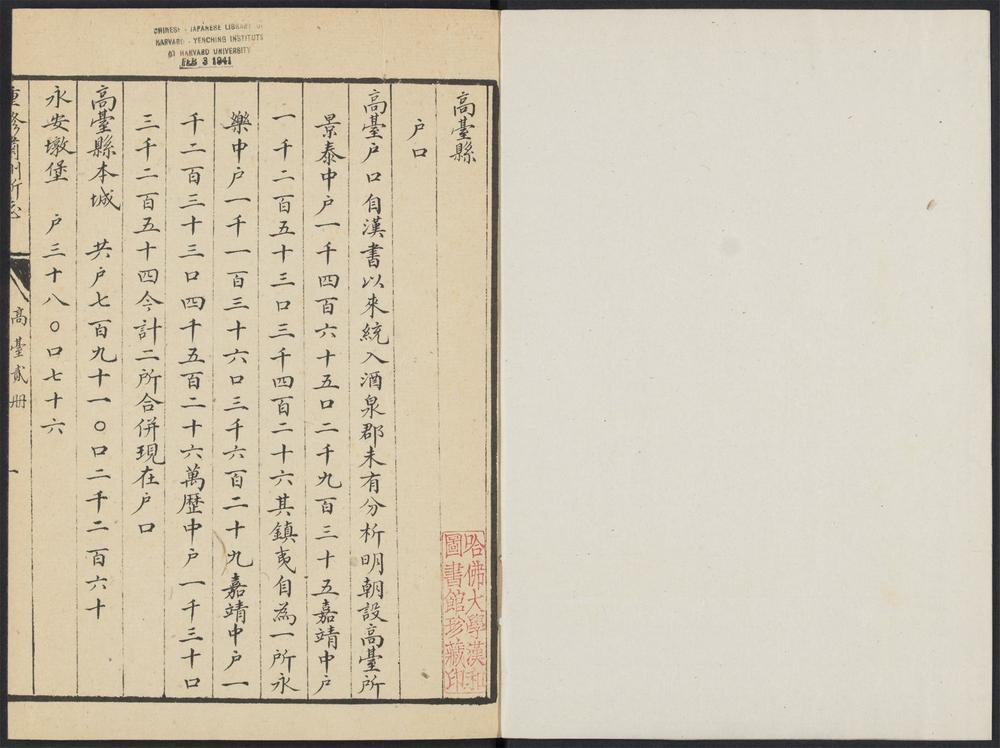 CHINESE - JAPANESE LIBRARY OF
HARVARD - YENCHING INSTITUTE
AT HARVARD UNIVERSITY
FEB 3 1941
高臺縣
戶口
高臺戶口自漢書以來統入酒泉郡未有分析明朝設高臺所
景泰中戶一千四百六十五口二千九百三十五嘉靖中戶
一千二百五十三口三千四百二十六其鎮夷自為一所永
樂中戶一千一百三十六口三千六百二十九嘉靖中戶一
千二百三十三口四千五百二十六萬歷中戶一千三十口
三千二百五十四今計二所合併現在戶口
高臺縣本城 共戶七百九十一〇口二千二百六十
永安墩堡 戶三十八〇口七十六
重修肅州新志 高臺貳冊 一
哈佛大學漢和
圖書館珍藏印